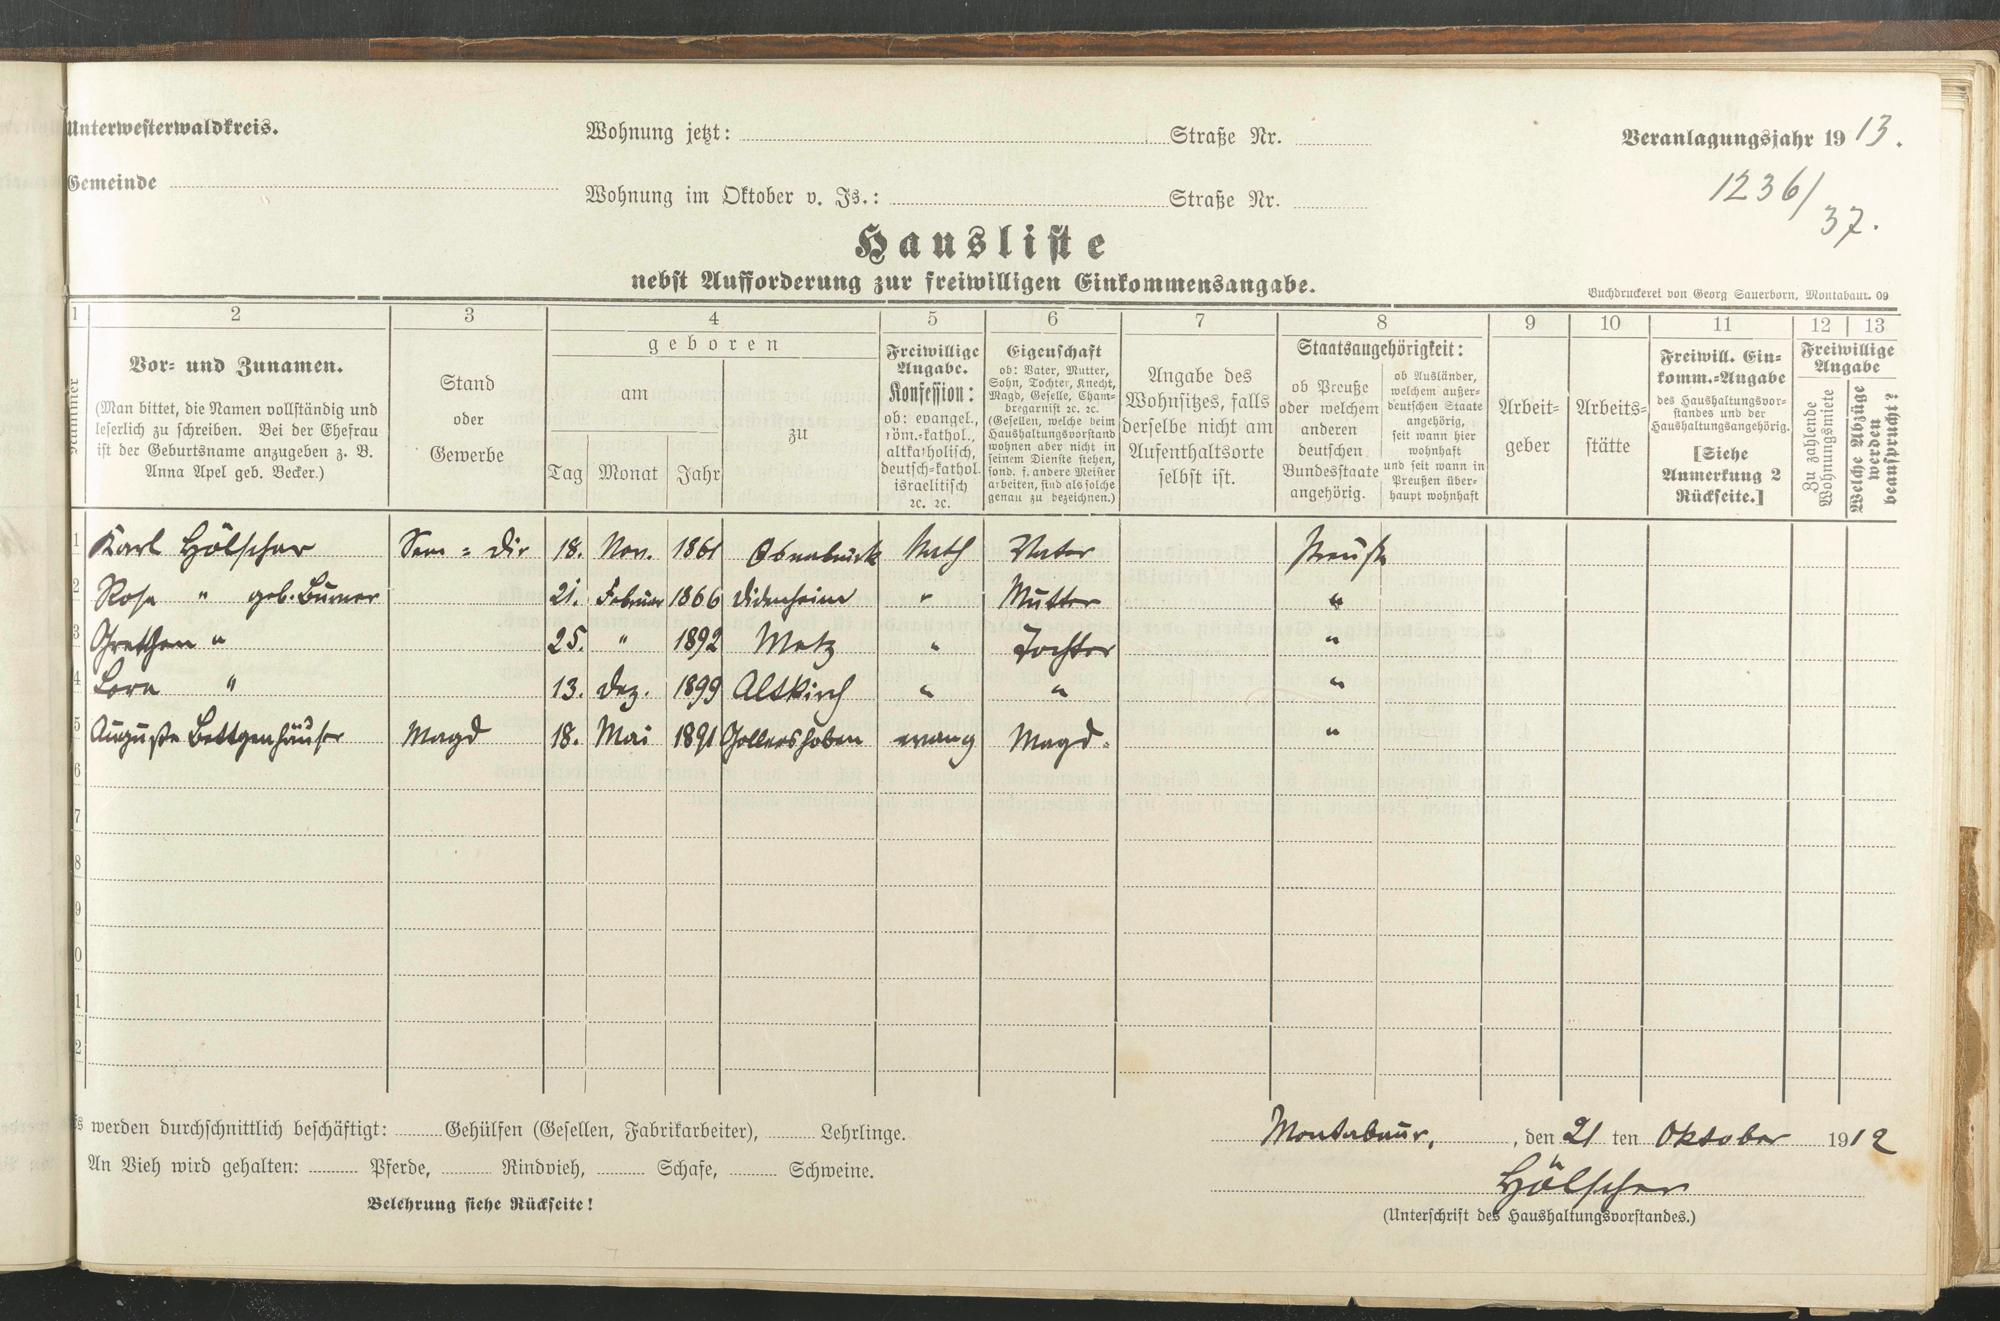 Unterwesterwaldkreis.
Wohnung jetzt: Straße Nr.
Veranlagungsjahr 1913.
Gemeinde
Wohnung im Oktober v. Js.: Straße Nr.
1236/
37.
Hausliste
nebst Aufforderung zur freiwilligen Einkommensangabe.
Buchdruckerei von Georg Sauerborn, Montabaur. 09
1 2 3 4 5 6 7 8 9 10 11 12 13
Nummer
Vor- und Zunamen.
(Man bittet, die Namen vollständig und
leserlich zu schreiben. Bei der Ehefrau
ist der Geburtsname anzugeben z. B.
Anna Apel geb. Becker.)
Stand
oder
Gewerbe
geboren
am
Tag Monat Jahr
zu
Freiwillige
Angabe.
Konfession:
ob: evangel.,
röm.-kathol.,
altkatholisch,
deutsch-kathol.
israelitisch
ꝛc. ꝛc.
Eigenschaft
ob: Vater, Mutter,
Sohn, Tochter, Knecht,
Magd, Geselle, Cham-
bregarnist ꝛc. ꝛc.
(Gesellen, welche beim
Haushaltungsvorstand
wohnen aber nicht in
seinem Dienste stehen,
sond. f. andere Meister
arbeiten, sind als solche
genau zu bezeichnen.)
Angabe des
Wohnsitzes, falls
derselbe nicht am
Aufenthaltsorte
selbst ist.
Staatsangehörigkeit:
ob Preuße
oder welchem
anderen
deutschen
Bundesstaate
angehörig.
ob Ausländer,
welchem außer-
deutschen Staate
angehörig,
seit wann hier
wohnhaft
und seit wann in
Preußen über-
haupt wohnhaft
Arbeit-
geber
Arbeits-
stätte
Freiwill. Ein-
komm.-Angabe
des Haushaltungsvor-
standes und der
Haushaltungsangehörig.
[Siehe
Anmerkung 2
Rückseite.]
Freiwillige
Angabe
Zu zahlende
Wohnungsmiete
Welche Abzüge
werden
gewünscht?
1 Karl Hölscher Sem = Dir 18. Nov. 1861 Osnabrück kath Vater Preuße
2 Rosa " geb. 21. Februar 1866 Didenheim " Mutter "
3 Gretchen " 25. " 1892 Metz " Tochter "
4 Lora " 13. Dez. 1899 Altkirch " " "
5 Auguste Bettgenhäuser Magd 18. Mai 1891 evang Magd. "
6
7
8
9
0
1
2
Es werden durchschnittlich beschäftigt: Gehülfen (Gesellen, Fabrikarbeiter), Lehrlinge.
Montabaur, , den 21 ten Oktober 1912
An Vieh wird gehalten: Pferde, Rindvieh, Schafe, Schweine.
Hölscher
Belehrung siehe Rückseite!
(Unterschrift des Haushaltungsvorstandes.)